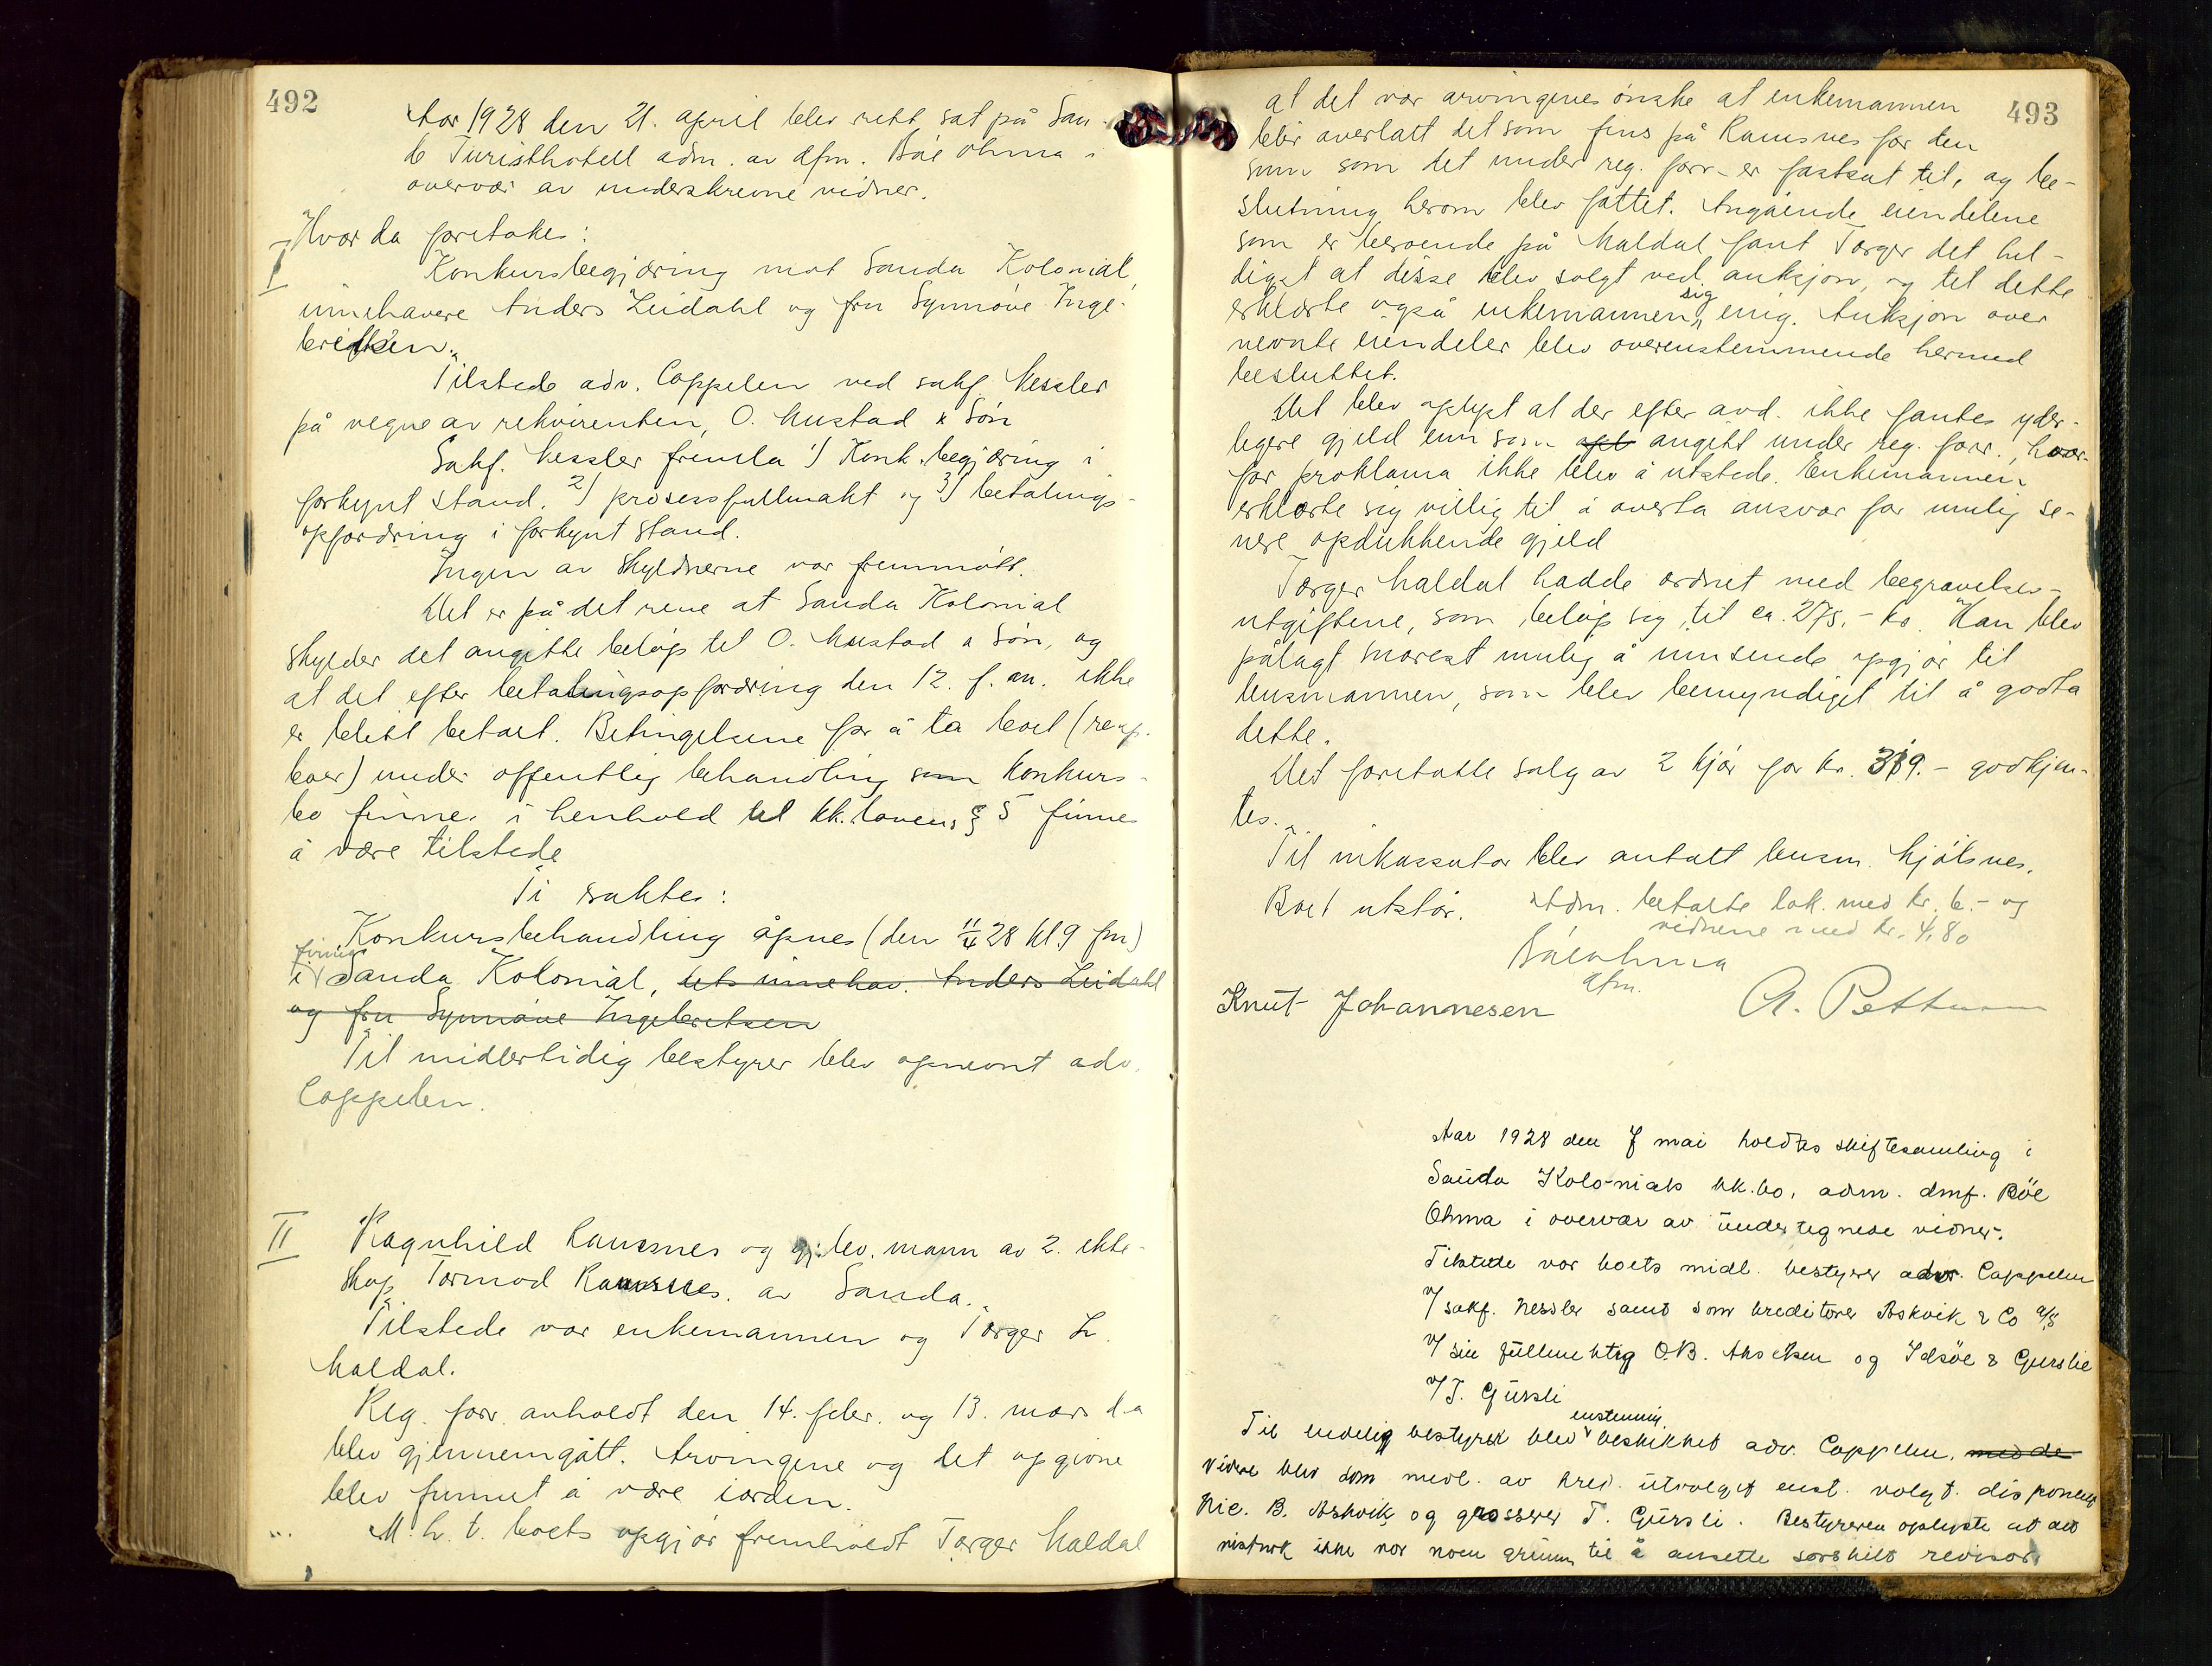 492
Aar 1928 den 21. april blev rett sat på Sau-
da Turisthotell adm. av dfm. Böe Ohma i
overvær av underskrevne vidner.
Hvor da foretokes:
I
Konkursbegjæring mot Sauda Kolonial,
innehavere Anders Leidahl og fru Synnöve Inge-
bretsen.
Tilstede adv. Cappelen ved sakf. Nessler
på vegne av rekvirenten, O. Mustad & Sön
Sakf. Nessler fremla 1) Konk.begjæring i
forkynt stand. 2) prosessfullmakt og 3) betalings-
opfordring i forkynt stand.
Ingen av skyldnerne var fremmött.
Det er på det rene at Sauda Kolonial
skylder det angitte belöp til O. Mustad & Sön, og
at det efter betalingsopfordring den 12. f. m. ikke
er blitt betalt. Betingelsene for å ta boet (resp.
boer) under offentlig behandling som konkurs-
bo finnes i henhold til kk.lovens § 5 finnes
å være tilstede
Ti saktes:
Konkursbehandling åpnes (den 11/4 28 kl 9 fm)
firmaet
i Sauda Kolonial, dets innehav. Anders Leidahl
og fru Synnöve Ingebretsen
Til midlertidig bestyrer blev opnevnt adv.
Cappelen.
II
Ragnhild Ramsnes og gj.lev. mann av 2. ekte-
skap Tormod Ramsnes. av Sauda.
Tilstede var enkemannen og Torger L.
Maldal.
Reg. forr. avholdt den 14. febr. og 13. mars d.a
blev gjennemgått. Arvingene og det opgivne
blev funnet å være iorden.
M. h. t. boets opgjör fremholdt Torger Maldal
493
at det var arvingenes önske at enkemannen
blir overlatt det som fins på Ramsnes for den
sum som det under reg. forr. er fastsat til, og be-
slutning herom blev fattet. Angående eiendelene
som er beroende på Maldal fant Torger det hel-
digst at disse blev solgt ved auksjon, og til dette
sig
erklærte også enkemannen enig. Auksjon over
nevnte eiendeler blev overenstemmende hermed
besluttet.
Det blev oplyst at der efter avd. ikke fantes yder-
ligere gjeld enn som opt angitt under reg. forr., hvor-
for proklama ikke blev å utstede. Enkemannen
erklærte sig villig til å overta ansvar for mulig se-
nere opdukkende gjeld
Torger Maldal hadde ordnet med begravelses-
utgiftene, som belöp sig til ca. 275,- kr. Han blev
pålagt snarest mulig å innsende opgjör til
lensmannen, som blev bemyndiget til å godta
dette.
Det foretatte salg av 2 kjör for kr. 319.- godkjen-
tes.
Til inkassator blev antatt lensm. Kjölsnes.
Boet utstår.
Adm. betalte lok. med kr. 6.- og
vidnene med kr. 4,80
Böe Ohma
dfm.
Knut Johannesen
A. Petterson
Aar 1928 den 7 mai holdtes skiftesamling i
Sauda Kolonials kk.bo, adm. dmf. Böe
Ohma i overvær av undertegnede vidner.
Tilstede var boets midl. bestyrer adv. Cappelen
v/ sakf. Nessler samt som kreditorer Askvik & Co a/s
v/ sin fullmektig O.B. Akselsen og Idsöe & Gursli
v/ T. Gursli
enstemmig
Til endelig bestyrer blev beskikket adv. Cappelen. med de
Videre blev som medl. av kred. utvalget enst. valgt. disponent
Nic. B. Askvik og grosserer T. Gursli. Bestyreren oplyste at det
ikke var noen grunn til å ansette særskilt revisor.